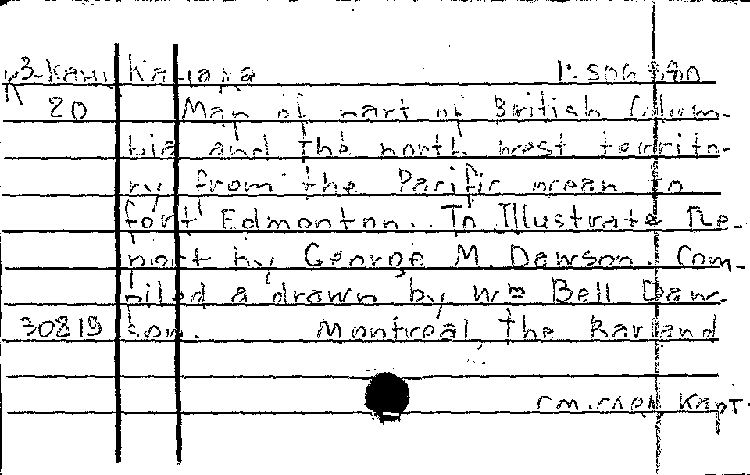 К3-Кан. Канада 1:506 880
20 Map of part of British Colum-
bia and the north west territo-
ry from the Pacific ocean to
fort Edmonton. To Illustrate Re-
port by George M. Dawson. Com-
piled a drawn by Wm Bell Daw-
30819 son. Montreal, the Barland
см. след. карт.